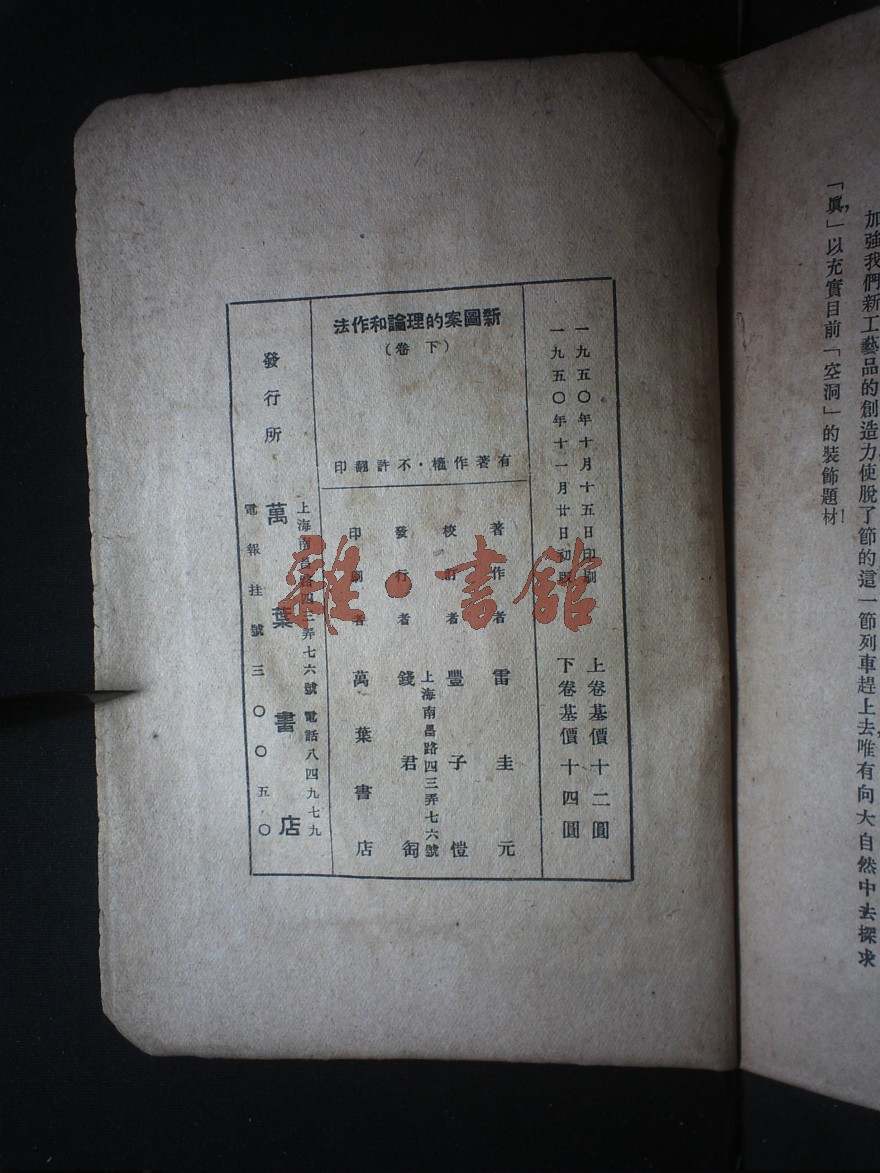 加強我們新工藝品的創造力使脫了節的這一節列車趕上去唯有向大自然中去探求
「眞，」以充實目前「空洞」的裝飾題材！
一九五〇年十月十五日印刷
一九五〇年十一月廿日初版
上卷基價十二圓
下卷基價十四圓
新圖案的理論和作法
（下卷）
有著作權・不許翻印
著作者 雷圭元
校訂者 豐子愷
上海南昌路四三弄七六號
發行者 錢君匋
印刷者 萬葉書店
發行所
上海南昌路四三弄七六號 電話八四九七九
萬葉書店
電報挂號三〇〇五〇
雜・書館